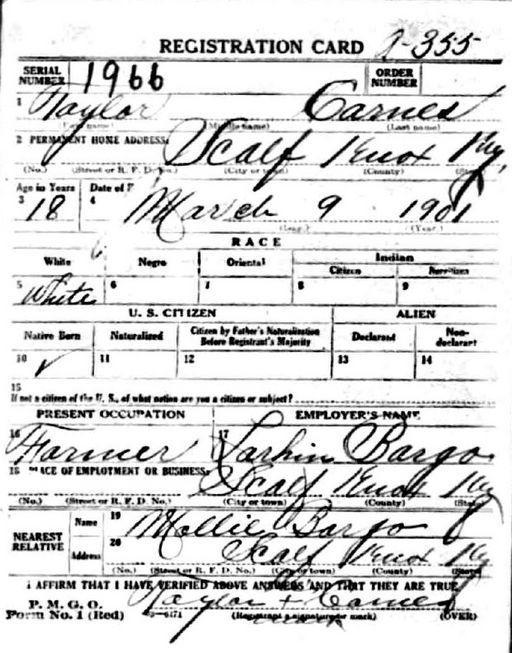 REGISTRATION CARD A-355
SERIAL NUMBER 1966 ORDER NUMBER
1 Taylor Carnes
(First name) (Middle name) (Last name)
2 PERMANENT HOME ADDRESS: Scalf Knox Ky.
(No.) (Street or R. F. D. No.) (City or town) (County) (State)
Age in Years Date of
3 18 4 March 9 1901
(Day.) (Year.)
RACE
White Negro Oriental Indian
Citizen Noncitizen
5 White 6 7 8 9
U. S. CITIZEN ALIEN
Native Born Naturalized Citizen by Father's Naturalization Before Registrant's Majority Declarant Non-declarant
10 ✓ 11 12 13 14
15
If not a citizen of the U. S., of what nation are you a citizen or subject?
PRESENT OCCUPATION EMPLOYER'S NAME
16 Farmer 17 Larkin Bargo
18 PLACE OF EMPLOYMENT OR BUSINESS: Scalf Knox Ky
(No.) (Street or R. F. D. No.) (City or town) (County) (State)
NEAREST RELATIVE Name 19 Mollie Bargo
Address 20 Scalf Knox Ky
(No.) (Street or R. F. D. No.) (City or town) (County) (State)
I AFFIRM THAT I HAVE VERIFIED ABOVE ANSWERS AND THAT THEY ARE TRUE
P. M. G. O. Taylor + Carnes
Form No. 1 (Red) (Registrant's signature or mark) (OVER)